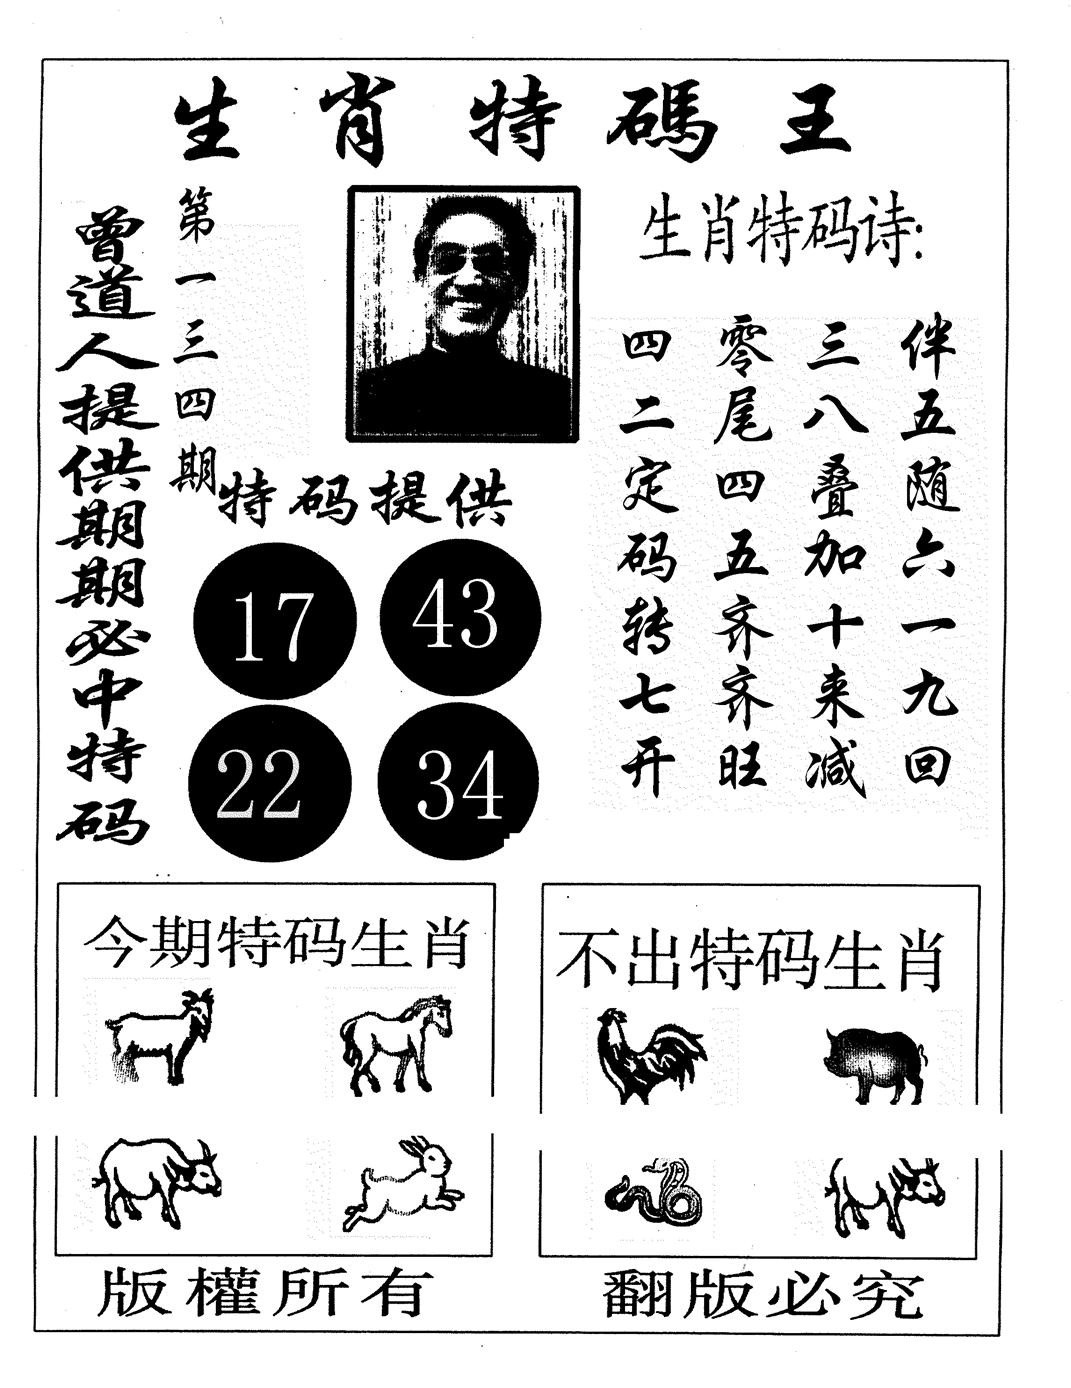 生肖特碼王
第一三四期
曾道人提供期期必中特码
特码提供
17 43
22 34
生肖特码诗:
伴五随六一九回
三八叠加十来减
零尾四五齐齐旺
四二定码转七开
今期特码生肖
不出特码生肖
版權所有
翻版必究